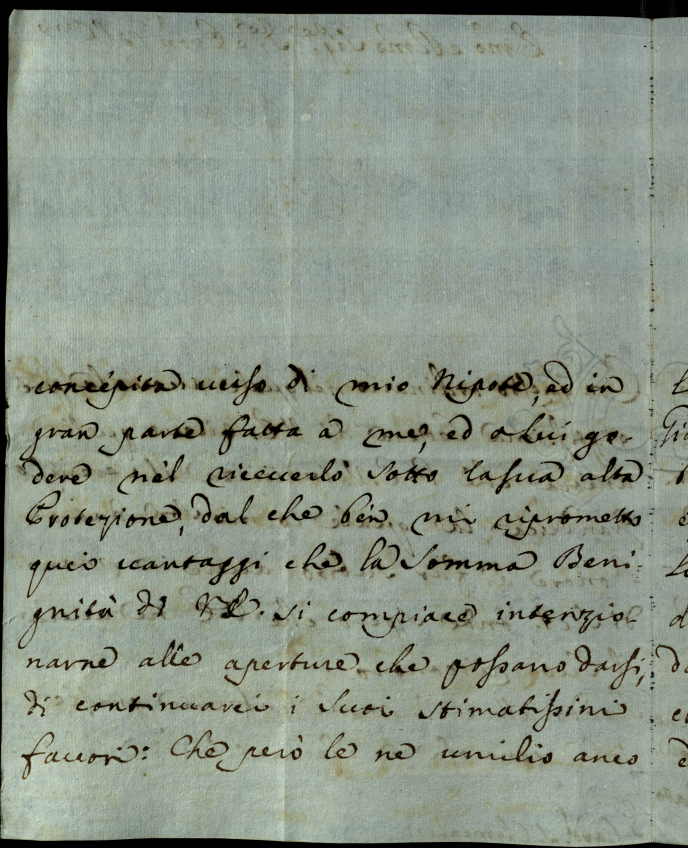 concepita verso di mio Nipote, ed in
gran parte fatta a me, ed a Lui go-
dere nel riceverlo sotto la sua alta
Protezione, dal che ben mi riprometto
quei vantaggi che la Somma Beni-
gnità di V.E. si compiace intenzio-
narne alle aperture che possano darsi,
di continuarci i Suoi stimatissimi
favori: Che però le ne umilio anco